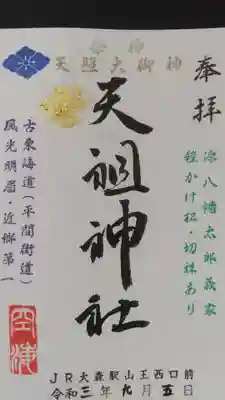 奉拝
源八幡太郎義家
鎧かけ松・切株あり
祭神
天照大御神
天祖神社
古東海道(平間街道)
風光明眉・近郷第一
JR大森駅山王西口前
令和三年九月五日